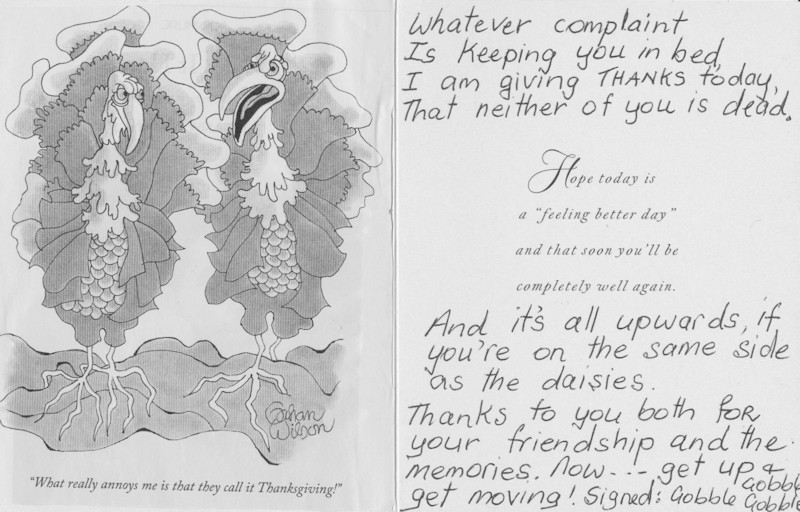 Gahan
Wilson
"What really annoys me is that they call it Thanksgiving!"
Whatever complaint
Is keeping you in bed,
I am giving THANKS today,
That neither of you is dead.
Hope today is
a "feeling better day"
and that soon you'll be
completely well again.
And it's all upwards, if
you're on the same side
as the daisies.
Thanks to you both for
your friendship and the
memories. Now--- get up &
get moving! Signed: Gobble Gobble
Gobble